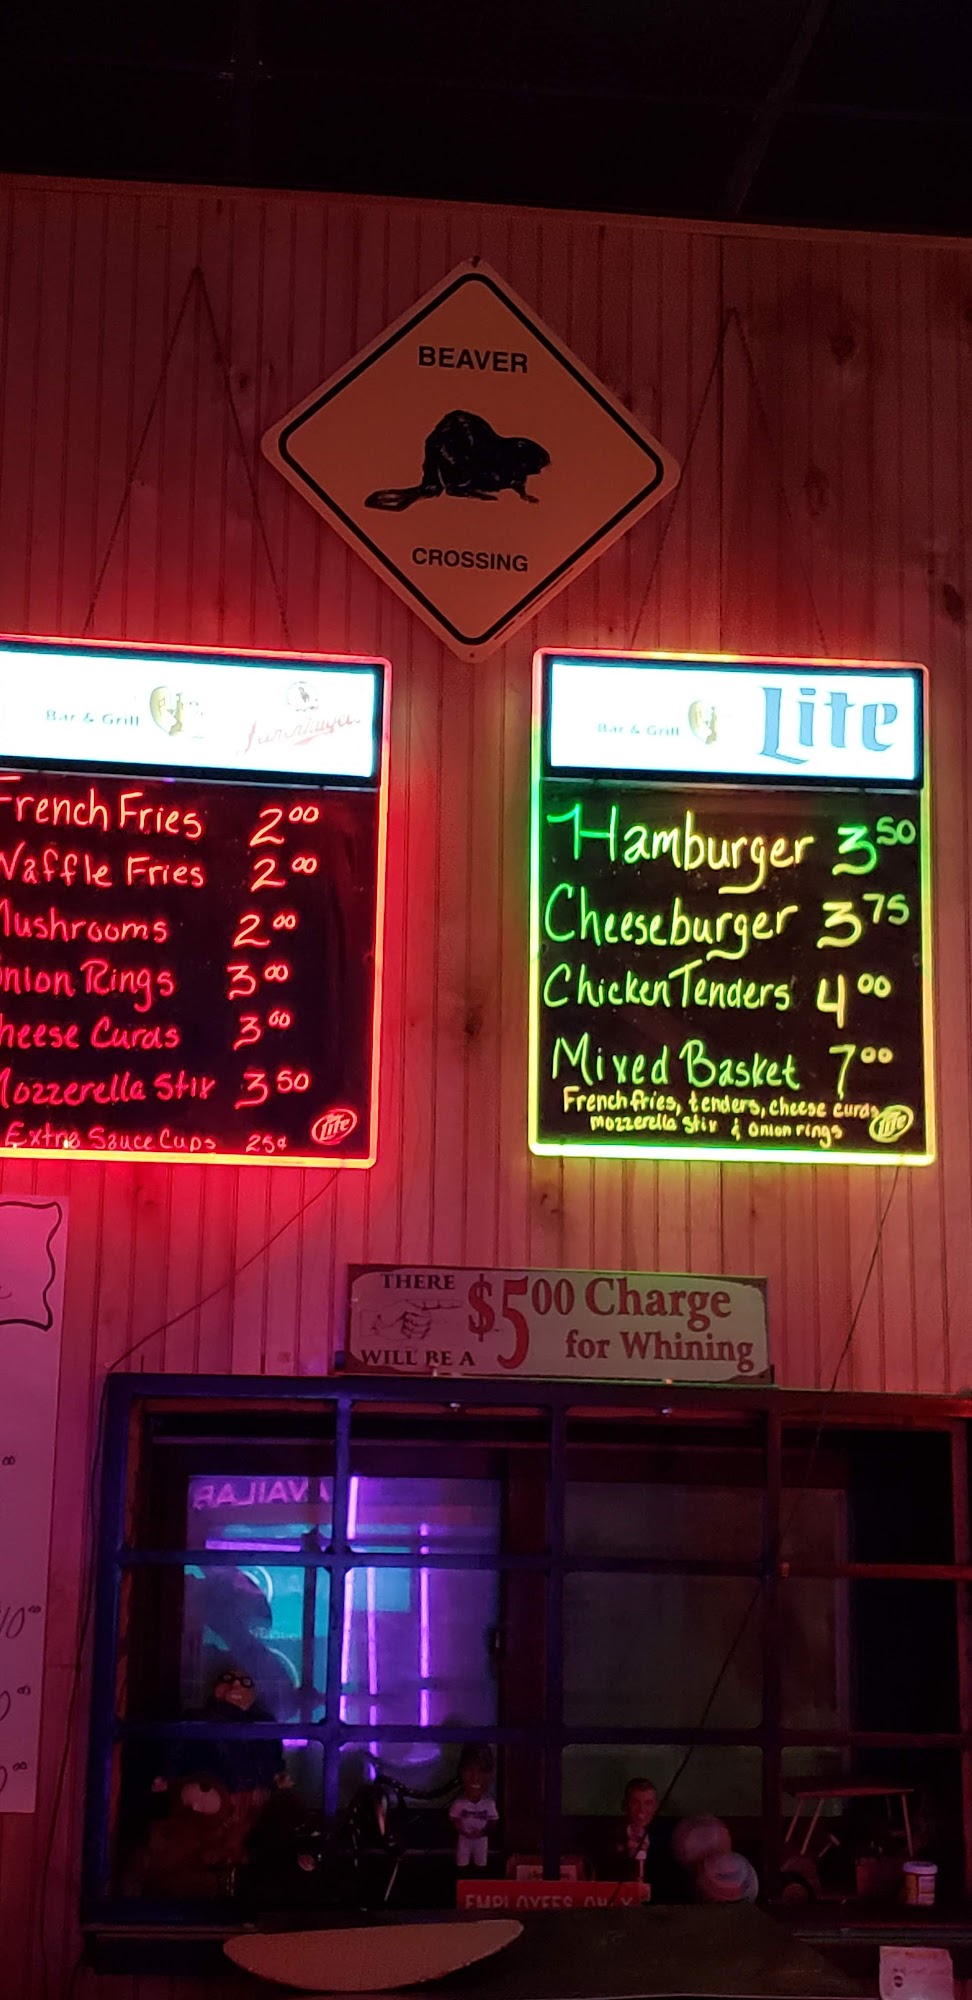 BEAVER
CROSSING
Bar & Grill
Leinenkugel's
French Fries 2.00
Waffle Fries 2.00
Mushrooms 2.00
Onion Rings 3.00
Cheese Curds 3.00
Mozzerella Stix 3.50
Extra Sauce Cups 25¢
Lite
Bar & Grill
Lite
Hamburger 3.50
Cheeseburger 3.75
Chicken Tenders 4.00
Mixed Basket 7.00
French fries, tenders, cheese curds
mozzerella stix & onion rings
Lite
THERE
WILL BE A
$5.00 Charge
for Whining
EMPLOYEES ONLY